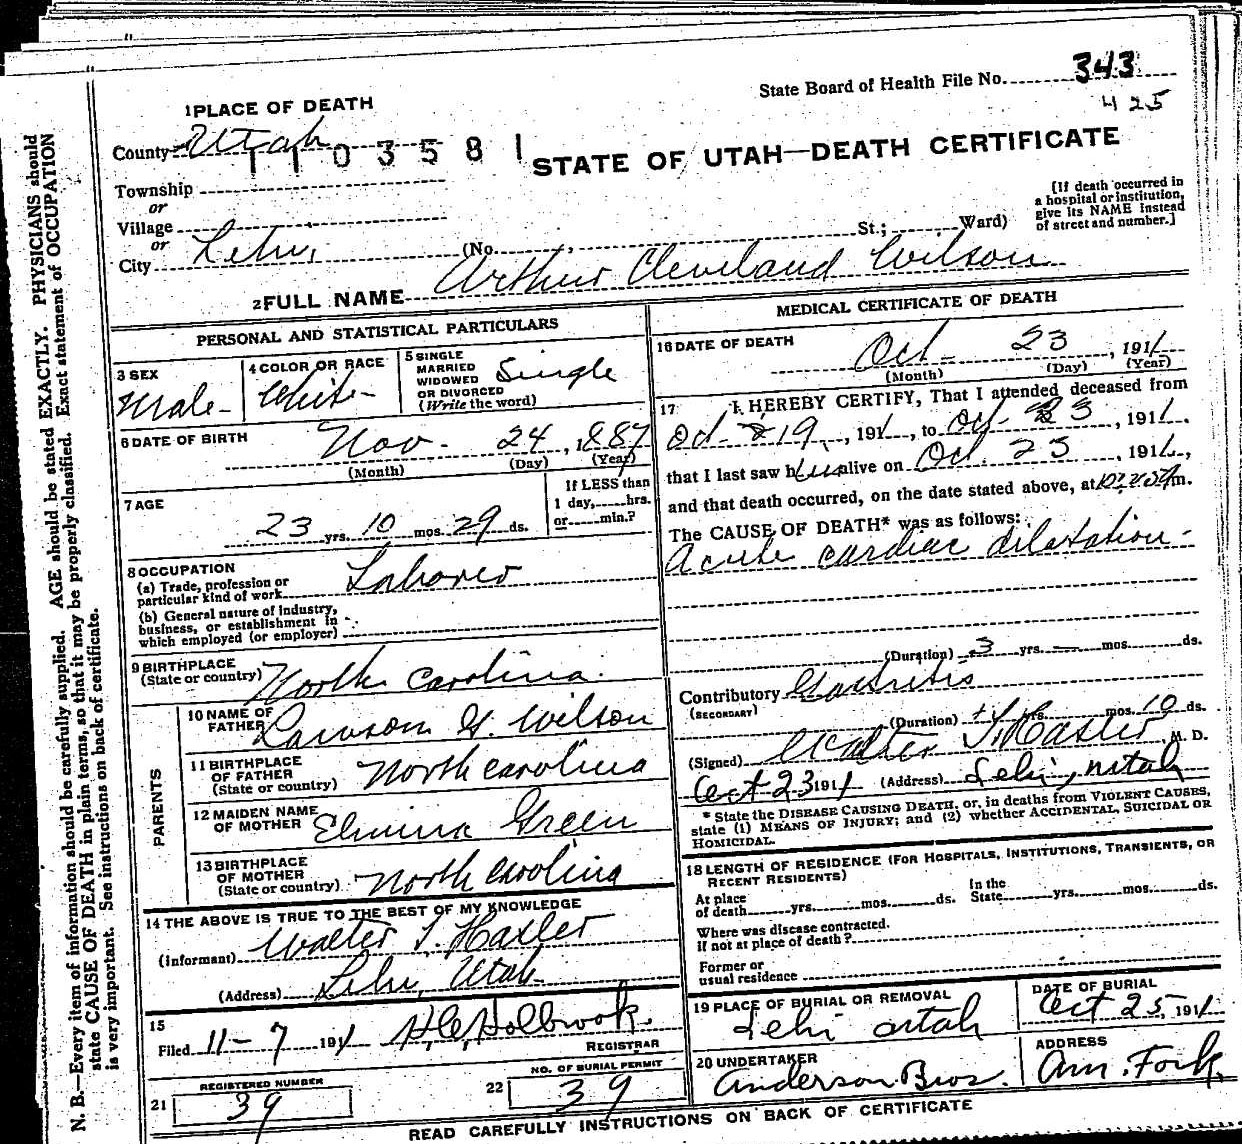 State Board of Health File No. 343
425
1 PLACE OF DEATH
County Utah
1103581
STATE OF UTAH—DEATH CERTIFICATE
Township
or
Village
or
City Lehi, (No. , St.; Ward)
[If death occurred in
a hospital or institution,
give its NAME instead
of street and number.]
2 FULL NAME Arthur Cleveland Wilson
PERSONAL AND STATISTICAL PARTICULARS
3 SEX
Male-
4 COLOR OR RACE
White-
5 SINGLE
MARRIED
WIDOWED
OR DIVORCED
(Write the word)
Single
6 DATE OF BIRTH
Nov. 24, 1887
(Month) (Day) (Year)
7 AGE
23 yrs. 10 mos. 29 ds.
If LESS than
1 day, hrs.
or min.?
8 OCCUPATION
(a) Trade, profession or
particular kind of work Laborer
(b) General nature of industry,
business, or establishment in
which employed (or employer)
9 BIRTHPLACE
(State or country) North Carolina.
PARENTS
10 NAME OF
FATHER Lawson G. Wilson
11 BIRTHPLACE
OF FATHER
(State or country) North Carolina
12 MAIDEN NAME
OF MOTHER Elmina Green
13 BIRTHPLACE
OF MOTHER
(State or country) North Carolina
14 THE ABOVE IS TRUE TO THE BEST OF MY KNOWLEDGE
(Informant) Walter T. Hasler
(Address) Lehi, Utah
15
Filed 11-7 1911 H. C. Holbrook.
REGISTRAR
21 REGISTERED NUMBER
39
22 NO. OF BURIAL PERMIT
39
MEDICAL CERTIFICATE OF DEATH
16 DATE OF DEATH
Oct- 23, 1911
(Month) (Day) (Year)
17 I HEREBY CERTIFY, That I attended deceased from
Oct- 19, 1911, to Oct- 23, 1911.
that I last saw him alive on Oct. 23, 1911,
and that death occurred, on the date stated above, at m.
The CAUSE OF DEATH* was as follows:
Acute cardiac dilatation-
(Duration) 3 yrs. mos. ds.
Contributory Gastritis
(SECONDARY)
(Duration) yrs. mos. 10 ds.
(Signed) Walter T. Hasler, M. D.
Oct 23 1911 (Address) Lehi, Utah
* State the DISEASE CAUSING DEATH, or, in deaths from VIOLENT CAUSES,
state (1) MEANS OF INJURY; and (2) whether ACCIDENTAL, SUICIDAL OR
HOMICIDAL.
18 LENGTH OF RESIDENCE (FOR HOSPITALS, INSTITUTIONS, TRANSIENTS, OR
RECENT RESIDENTS)
At place
of death yrs. mos. ds.
In the
State yrs. mos. ds.
Where was disease contracted.
if not at place of death?
Former or
usual residence
19 PLACE OF BURIAL OR REMOVAL
Lehi Utah
DATE OF BURIAL
Oct 25, 1911
20 UNDERTAKER
Anderson Bros.
ADDRESS
Am. Fork.
READ CAREFULLY INSTRUCTIONS ON BACK OF CERTIFICATE
N. B.—Every item of information should be carefully supplied. AGE should be stated EXACTLY. PHYSICIANS should
state CAUSE OF DEATH in plain terms, so that it may be properly classified. Exact statement of OCCUPATION
is very important. See instructions on back of certificate.